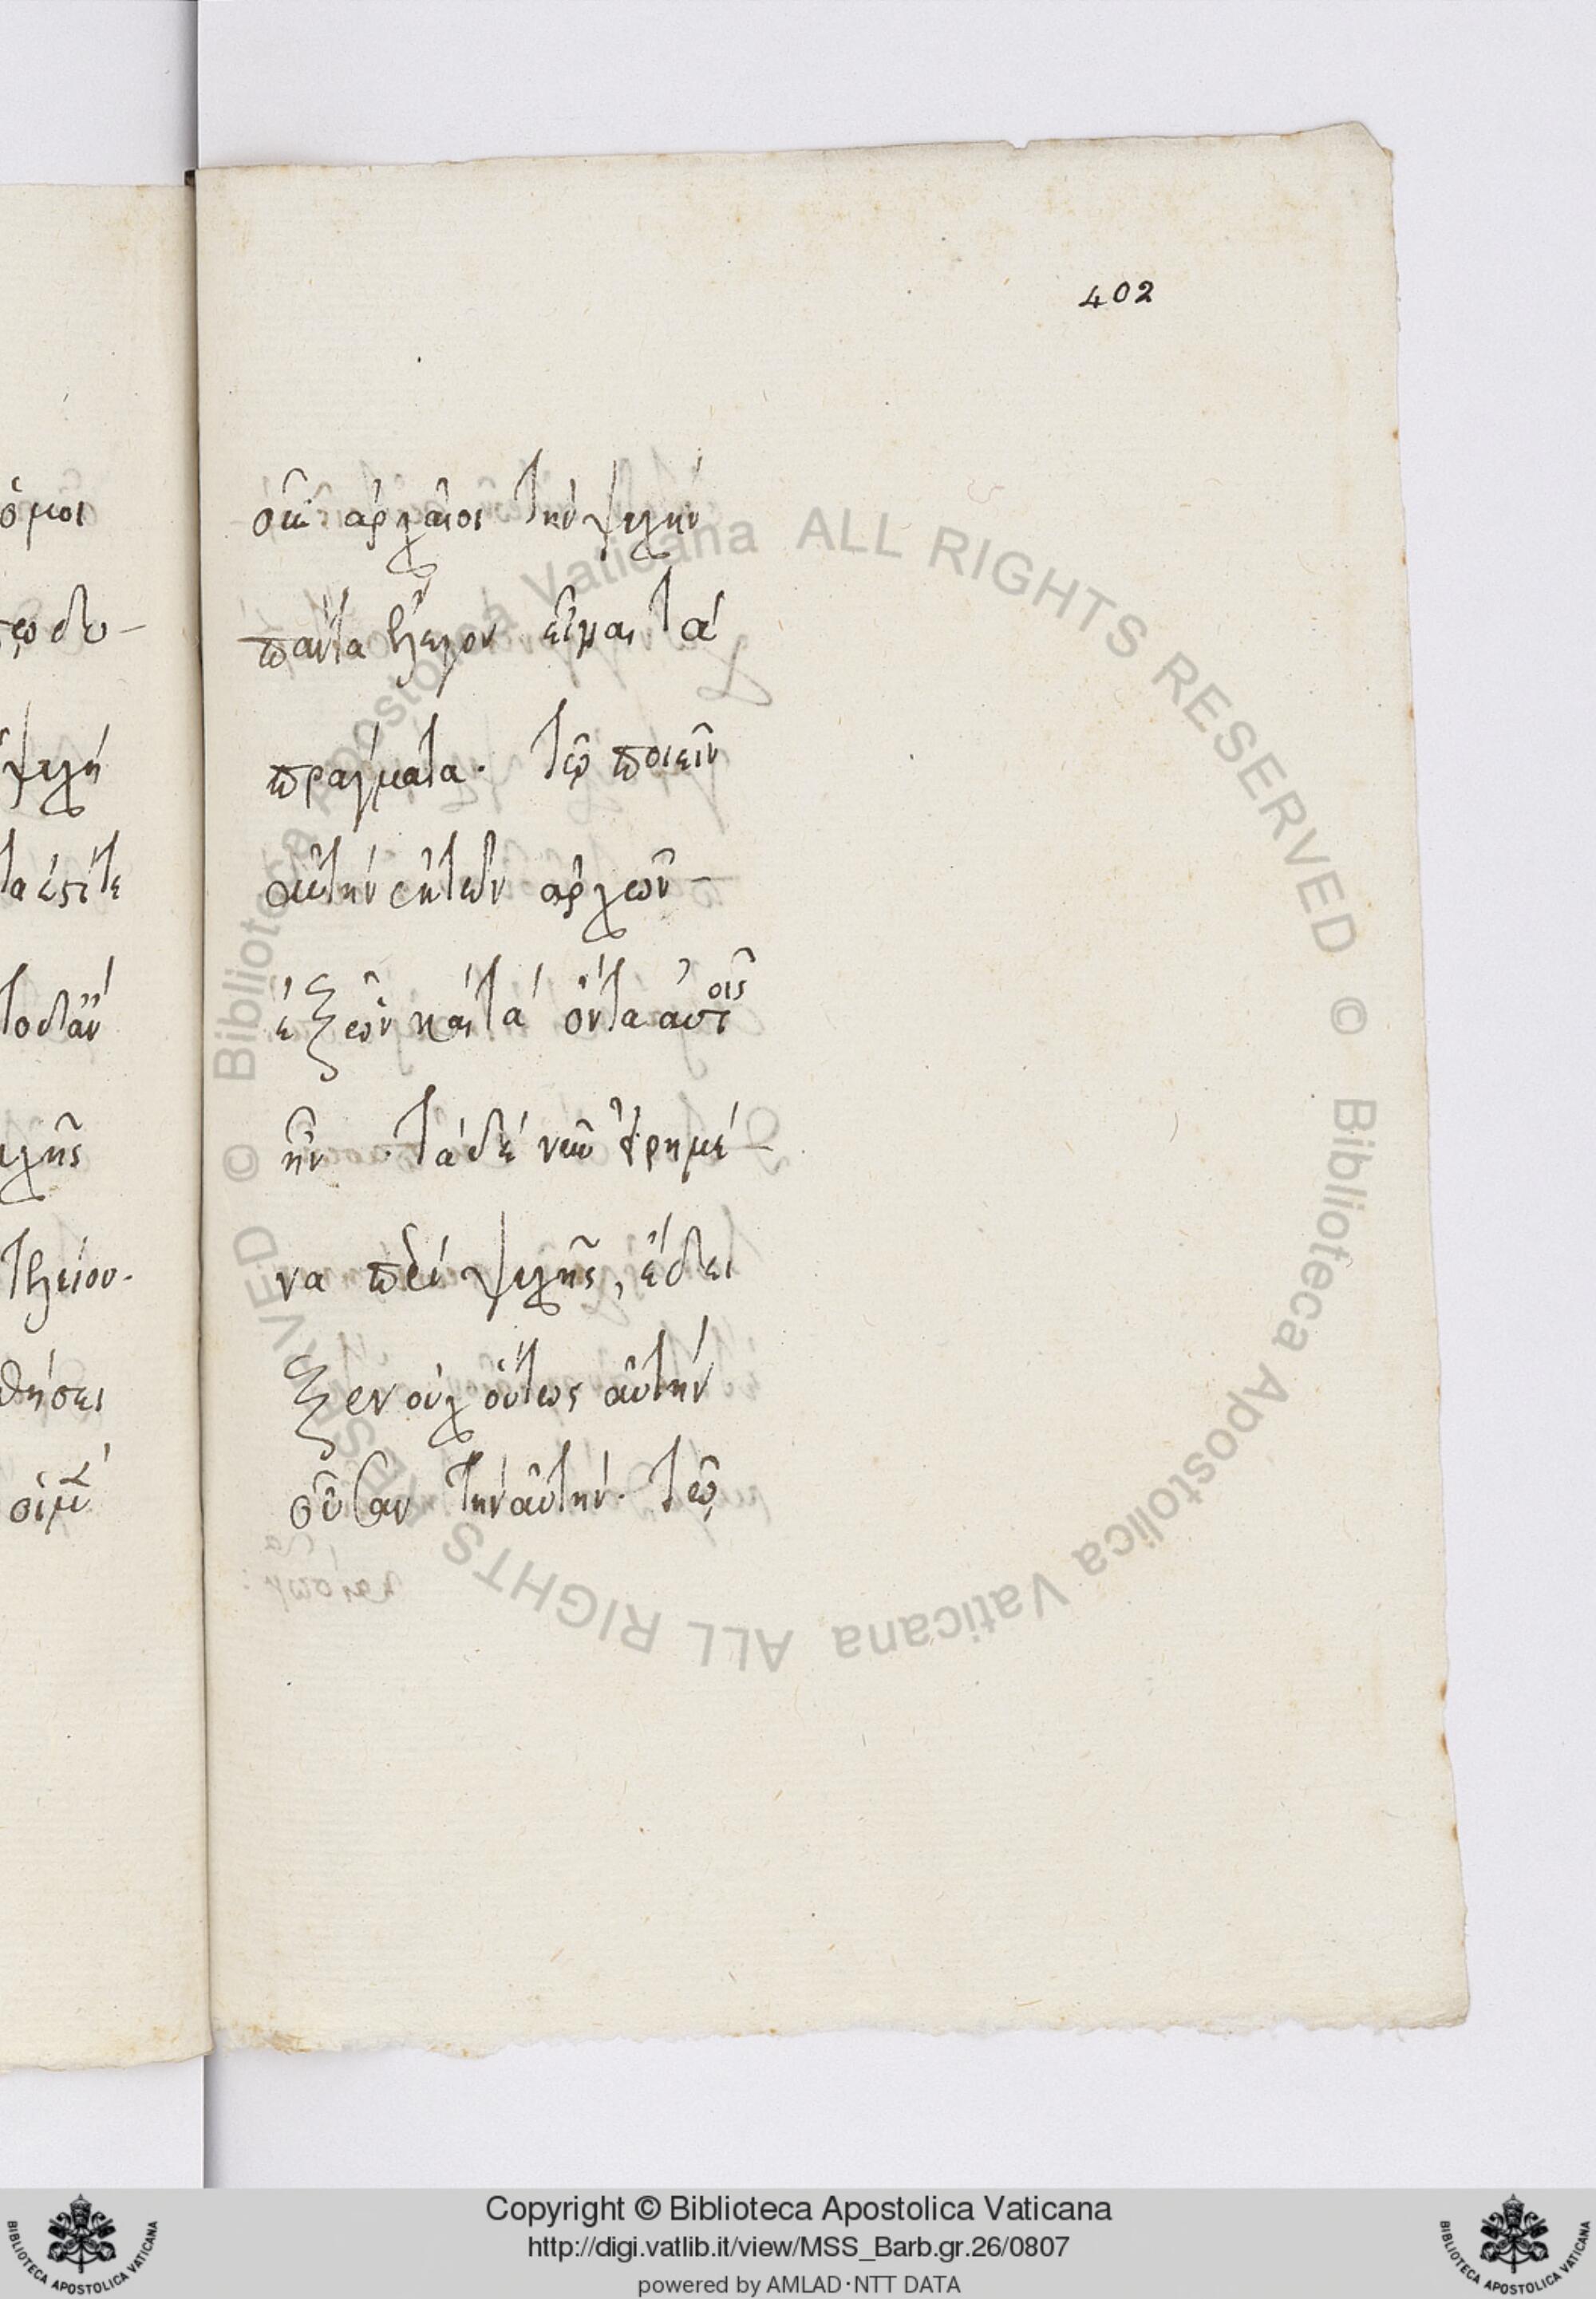 402
όμοι
οἱ ἀρχαῖοι τὴν ψυχὴν
πάντα ἔλεγον εἶναι τὰ
ψυχὴ
πράγματα. τῷ ποιεῖν
αὐτὴν ἐκ τῶν ἀρχῶν
ἐξ ὧν καὶ τὰ ὄντα αὐτοῖς
ἦν. τὰ δὲ νῦν εἰρημέ
να περὶ ψυχῆς, ἔδει
θήσει
ξεν οὐχ οὕτως αὐτὴν
οὖσαν τὴν αὐτὴν. τῷ
Biblioteca Apostolica Vaticana ALL RIGHTS RESERVED © Biblioteca Apostolica Vaticana ALL RIGHTS RESERVED ©
Copyright © Biblioteca Apostolica Vaticana
http://digi.vatlib.it/view/MSS_Barb.gr.26/0807
powered by AMLAD·NTT DATA
BIBLIOTECA APOSTOLICA VATICANA
BIBLIOTECA APOSTOLICA VATICANA